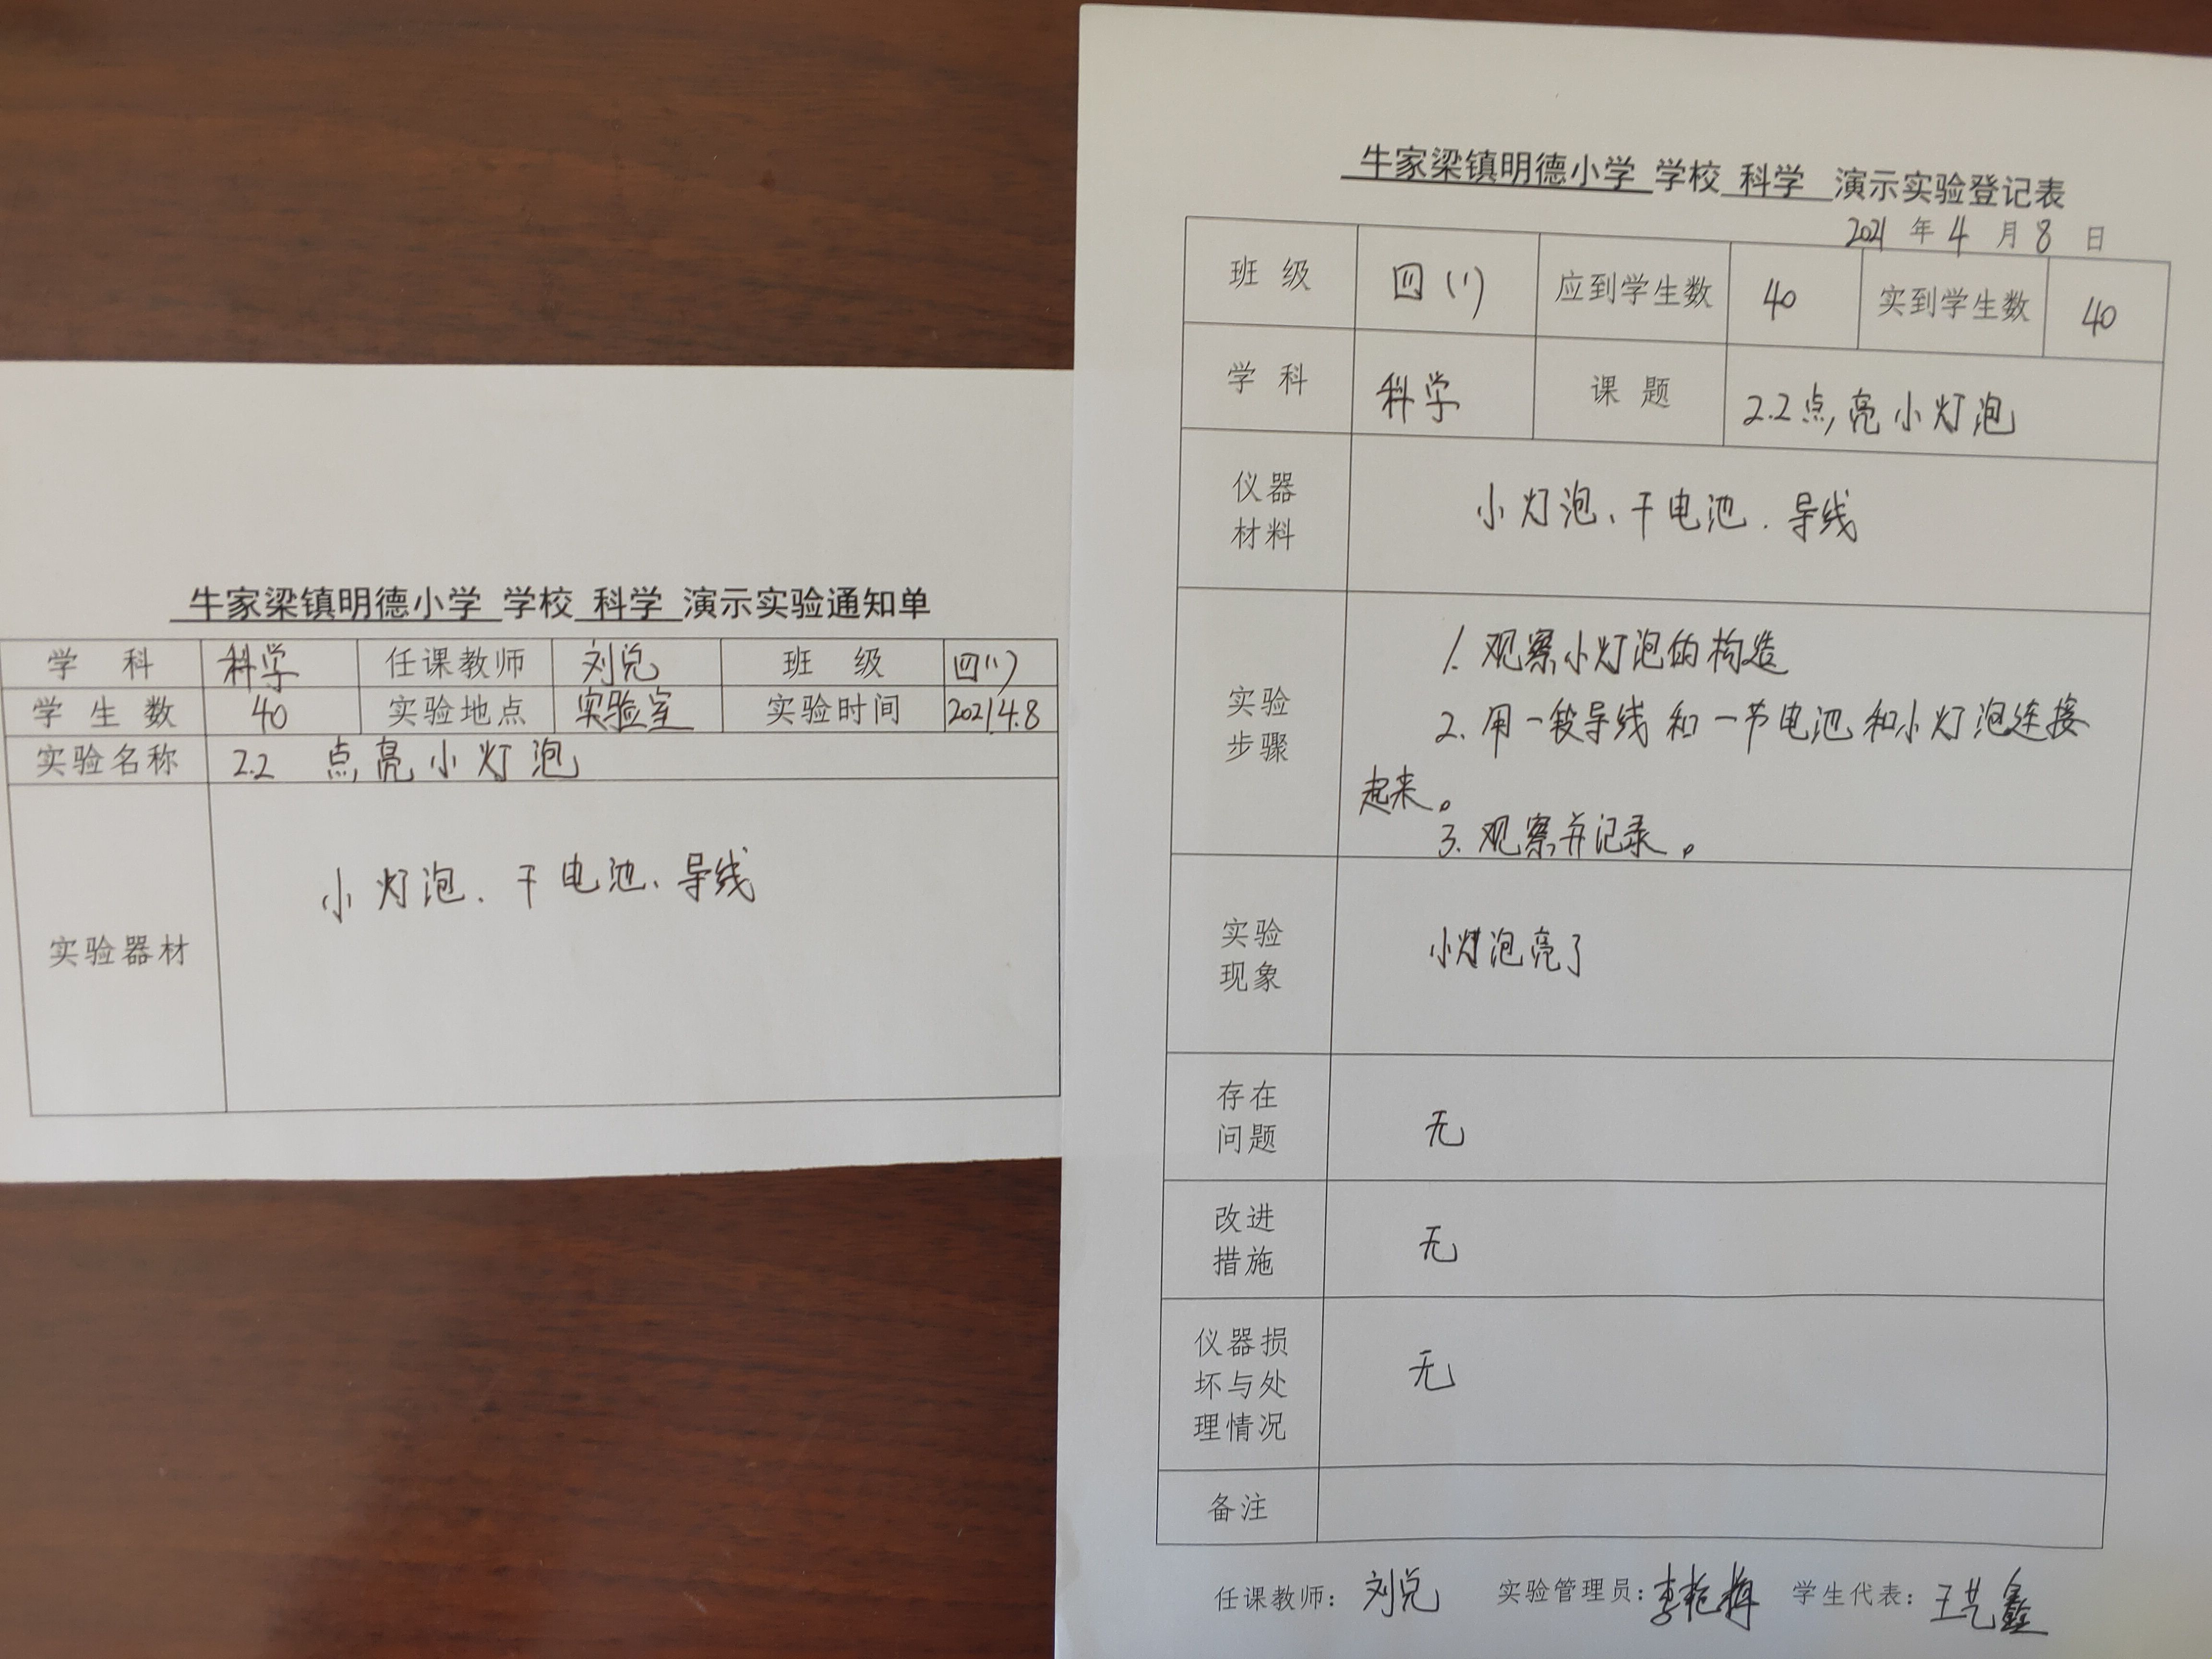 牛家梁镇明德小学 学校 科学 演示实验通知单
学 科 科学 任课教师 刘兑 班 级 四(1)
学 生 数 40 实验地点 实验室 实验时间 2021.4.8
实验名称 2.2 点亮小灯泡
实验器材 小灯泡、干电池、导线
牛家梁镇明德小学 学校 科学 演示实验登记表
2021 年 4 月 8 日
班 级 四(1) 应到学生数 40 实到学生数 40
学 科 科学 课 题 2.2点亮小灯泡
仪器
材料
小灯泡、干电池、导线
实验
步骤
1. 观察小灯泡的构造
2. 用一段导线和一节电池和小灯泡连接
起来。
3. 观察并记录。
实验
现象
小灯泡亮了
存在
问题
无
改进
措施
无
仪器损
坏与处
理情况
无
备注
任课教师: 刘兑 实验管理员: 李艳梅 学生代表: 王艺鑫